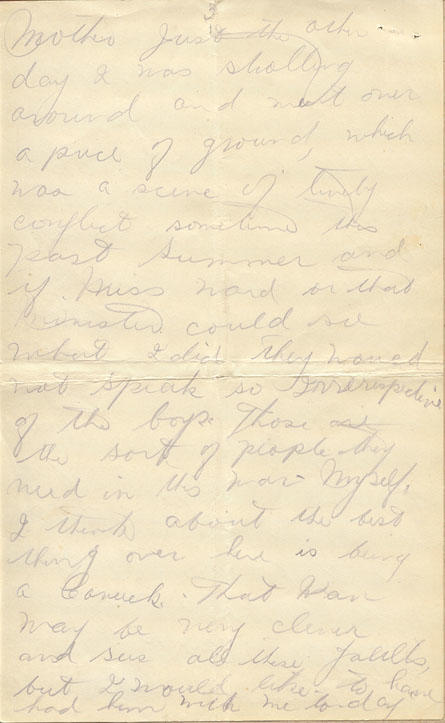 3
Mother Just the other
day I was strolling
around and went over
a piece of ground, which
was a scene of
conflict sometime this
past Summer and
if Miss Ward or that
Minister could see
what I did they would
not speak so Irrespective
of the boys. Those is
the sort of people they
need in this war. Myself.
I think about the best
thing over here is being
a Canuck. That Man
may be very clever
and sees all these faults,
but I would like to have
had him with me to-day